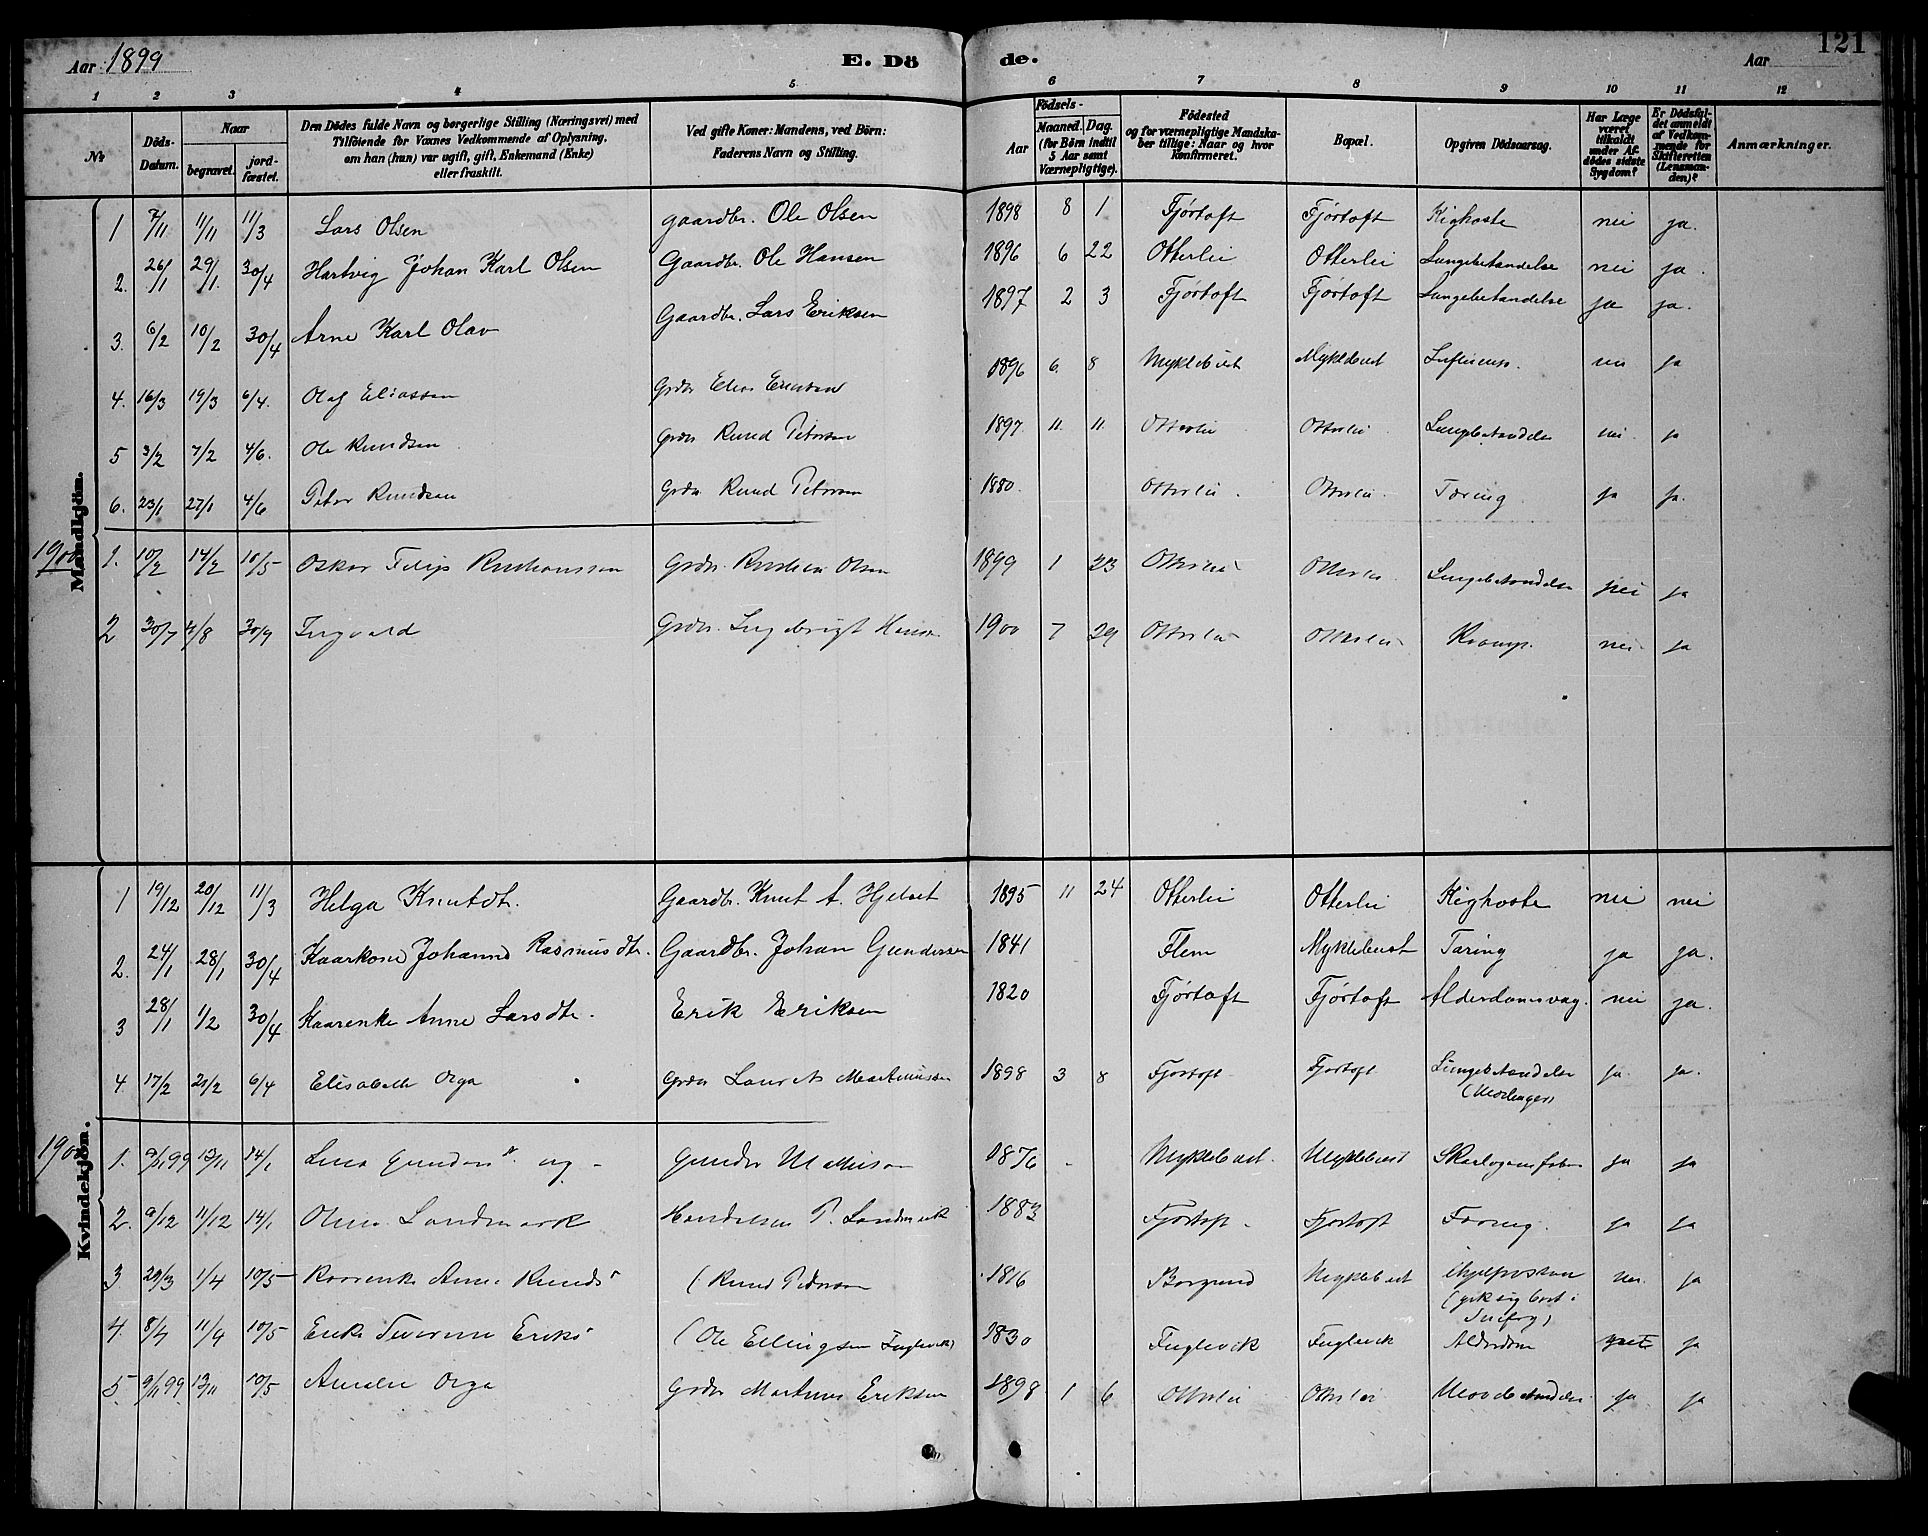 Aar 1899 E. Dö de. Aar 121
1 2 3 4 5 6 7 8 9 10 11 12
No
Döds-Datum.
Naar
begravet.
jord-fæstet.
Den Dödes fulde Navn og borgerlige Stilling (Næringsvei) med
Tilföiende for Voxnes Vedkommende af Oplysning,
om han (hun) var ugift, gift, Enkemand (Enke)
eller fraskilt.
Ved gifte Koner: Mandens, ved Börn:
Faderens Navn og Stilling.
Födsels-
Aar
Maaned. Dag.
(for Börn indtil
5 Aar samt
Værnepligtige).
Födested
og for værnepligtige Mandska-
ber tillige: Naar og hvor
Konfirmeret.
Bopæl.
Opgiven Dödsaarsag.
Har Læge
været
tilkaldt
under Af-
dödes sidste
Sygdom?
Er Dödsfal-
det anmeldt
af Vedkom-
mende for
Skifteretten
(Lensman-
den)?
Anmærkninger.
Mandkjön.
1 7/11 11/11 11/3 Lars Olsen gaardbr. Ole Olsen 1898 8 1 Fjörtoft Fjörtoft Kighoste nei ja.
2. 26/1 29/1. 30/4 Hartvig Johan Karl Olsen Gaardbr. Ole Hansen 1896 6 22 Otterlei Otterlei Lungebetændelse nei ja.
3. 6/2 10/2 30/4 Arne Karl Olav Gaardbr. Lars Eriksen 1897 2 3 Fjörtoft Fjörtoft Lungebetændelse ja ja.
4. 16/3 19/3 6/4. Olaf Eliassen Grdbr Elias 1896 6. 8 Myklebust Myklebust Influensa. nei ja
5 3/2 7/2 4/6. Ole Knudsen Grdbr Knud Petersen 1897 11. 11. Otterlei Otterlei Lungebetændelse nei. ja
6. 23/1 27/1 4/6 Peter Knudsen Grdbr Knud Petersen 1880. Otterlei. Otterlei. Tæring ja ja.
1900
1. 10/2 14/2 10/5 Oskar Filip Grdbr. Olsen 1899 1 23 Otterlei Otterlei Lungebetændelse nei ja
2 30/7 4/8 30/9 Ingvald Grdbr. Ingebrigt Hansen 1900 7 29 Otterlei Otterlei Krampe. nei ja
Kvindekjön.
1 19/12 20/12 11/3 Helga Knutdt. Gaardbr. Knut A. Hjelset 1895 11 24 Otterlei Otterlei Kighoste nei nei
2. 24/1 28/1 30/4 Kaarkone Johanne Rasmusdtr. Gaardbr. Johan Gundersen 1841 Flem Myklebust Tæring ja ja.
3 28/1 1/2 30/4 Kaarenke Anne Larsdtr. Erik Eriksen 1820 Fjörtoft Fjörtoft Alderdomsvag. nei ja.
4. 17/2 21/2 6/4 Elisabeth Olga Grdbr Laurits Martinussen 1898 3 8 Fjortoft Fjortoft Lungebetændelse ja ja.
1900
1. 9/11 99 13/11 14/1 Lina ug. Gunder Mathisen 1876 Myklebust. Myklebust Skarlagensfeber ja ja
2. 9/12 11/12 14/1 Oline Landmark Handelsm P. Landmark 1883 Fjortoft. Fjortoft Tæring. ja ja
3 29/3 1/4 10/5 Kaarenke Anne Knuds (Knud Pedersen 1816 Borgund Myklebust nei. ja
4. 8/4 11/9 10/5 Enke Eriks (Ole Ellingsen Fuglevik) 1830 Fuglevik Fuglevik Alderdom ja
5. 9/11 99 13/11 10/5 Amalie Olga Grdbr Martinus Eriksen 1898 1 6 Otterlei Otterlei ja ja